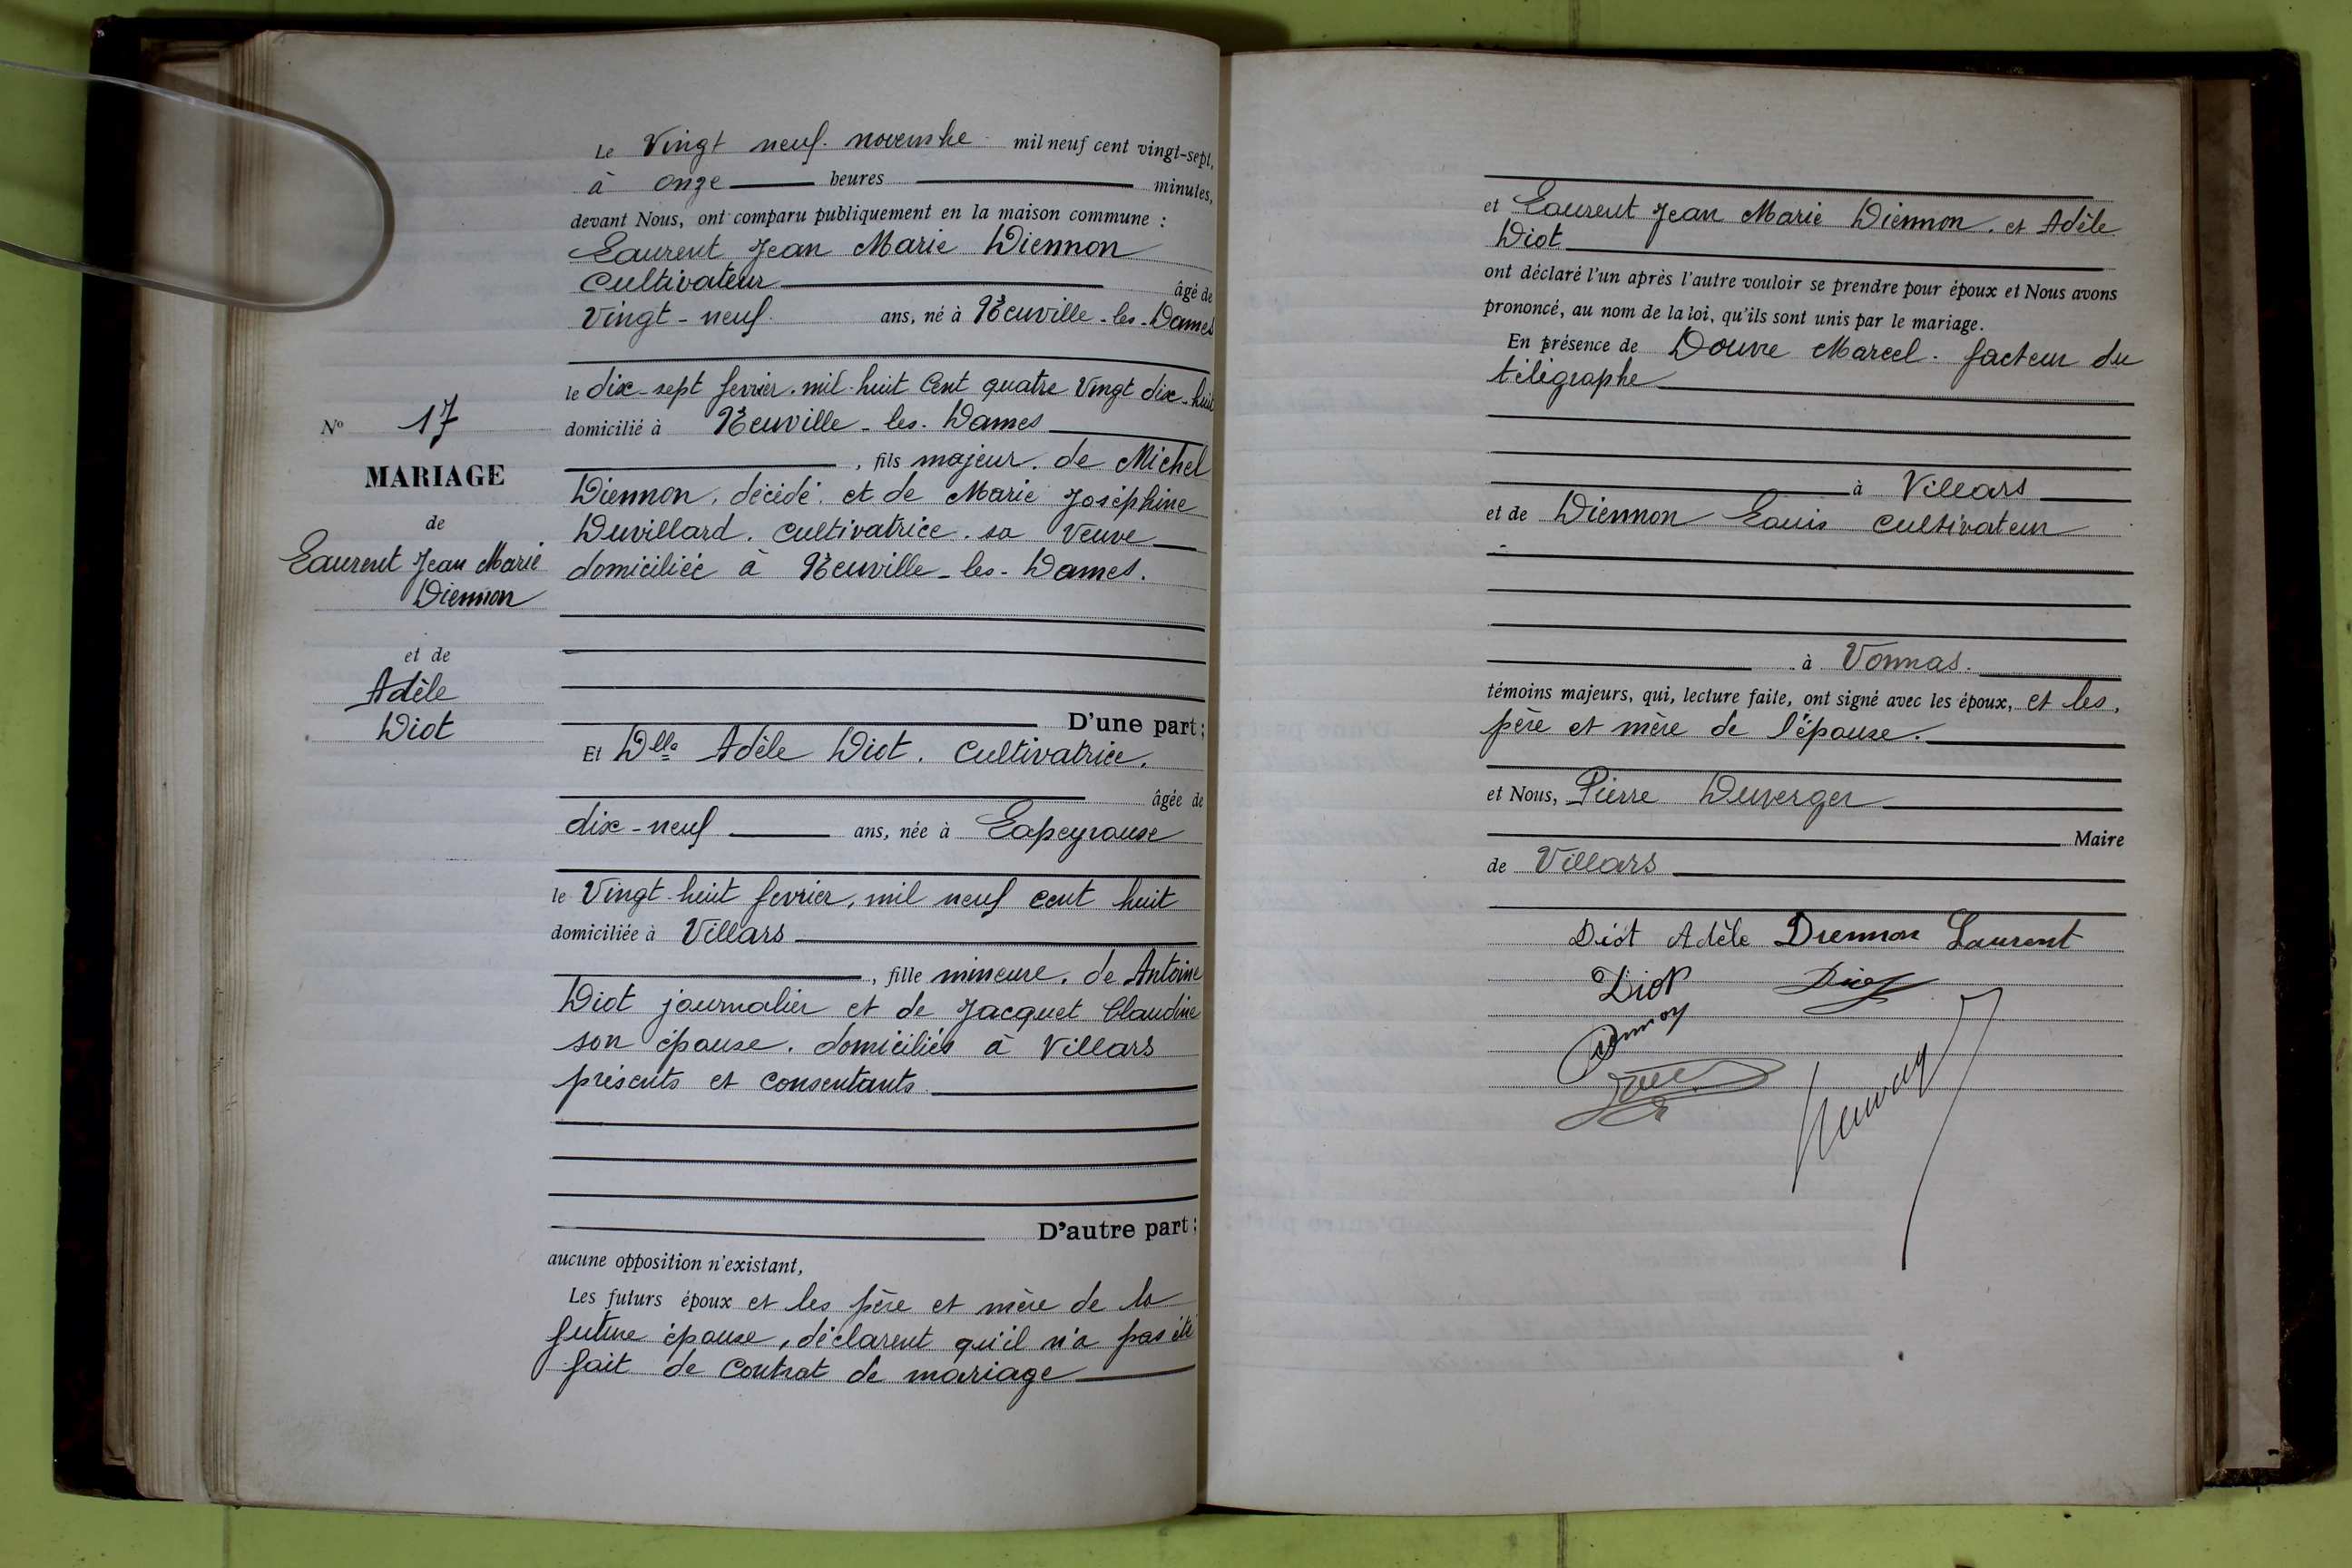 Le Vingt neuf novembre mil neuf cent vingt-sept,
à onze heures minutes,
devant Nous, ont comparu publiquement en la maison commune :
Laurent Jean Marie Diennon
Cultivateur âgé de
Vingt-neuf ans, né à Neuville-les-Dames
le dix-sept fevrier mil huit Cent quatre Vingt dix-huit
domicilié à Neuville-les-Dames
, fils majeur de Michel
Diennon, décédé et de Marie Joséphine
Duvillard. Cultivatrice. sa Veuve
domiciliée à Neuville-les-Dames.
D'une part ;
Nº 17
MARIAGE
de
Laurent Jean Marie
Diennon
et de
Adèle
Diot
Et Dlle Adèle Diot. Cultivatrice.
âgée de
dix-neuf ans, née à Lapeyrouse
le Vingt huit fevrier, mil neuf cent huit
domiciliée à Villars
, fille mineure, de Antoine
Diot journalier et de Jacquet Claudine
son épouse. domiciliés à Villars
présents et Consentants
D'autre part ;
aucune opposition n'existant,
Les futurs époux et les père et mère de la
future épouse, déclarent qu'il n'a pas été
fait de Contrat de mariage
et Laurent Jean Marie Diennon. et Adèle
Diot
ont déclaré l'un après l'autre vouloir se prendre pour époux et Nous avons
prononcé, au nom de la loi, qu'ils sont unis par le mariage.
En présence de Douvre Marcel. facteur du
télégraphe
à Villars
et de Diennon Louis Cultivateur
à Vonnas.
témoins majeurs, qui, lecture faite, ont signé avec les époux, et les,
père et mère de l'épouse.
et Nous, Pierre Duverger
Maire
de Villars
Diot Adèle Diennon Laurent
Diot